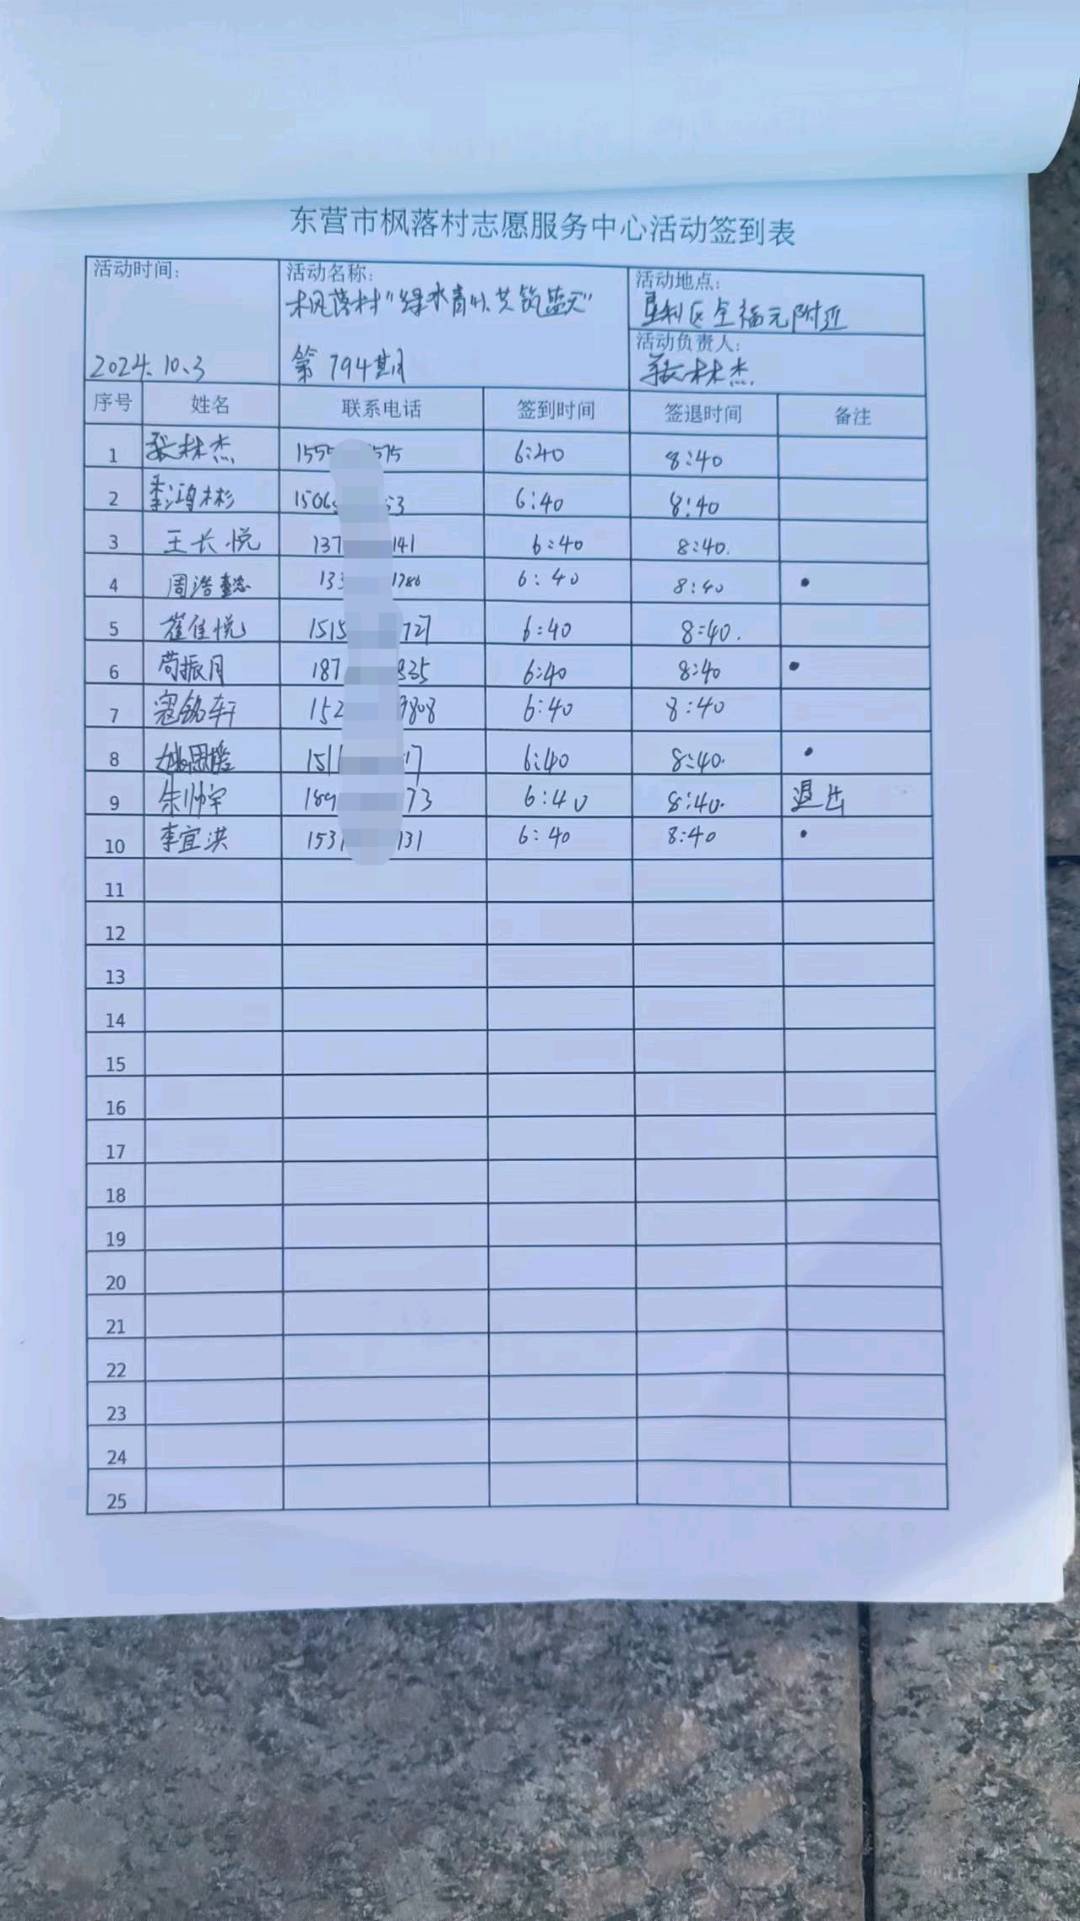 东营市枫落村志愿服务中心活动签到表
活动时间: 2024.10.3
活动名称: 枫落村"绿水青山共筑蓝天"
第794期
活动地点: 垦利区全福元附近
活动负责人: 张林杰
序号 姓名 联系电话 签到时间 签退时间 备注
1 张林杰 155 575 6:40 8:40
2 季鸿彬 1506 53 6:40 8:40
3 王长悦 137 141 6:40 8:40.
4 周浩懿 133 1786 6:40 8:40 •
5 崔佳悦 1515 727 6:40 8:40.
6 苟振月 187 835 6:40 8:40 •
7 寇铭轩 152 9808 6:40 8:40
8 姚思 151 17 6:40 8:40. •
9 朱帅宇 189 73 6:40 8:40. 退出
10 李宜洪 153 131 6:40 8:40 •
11
12
13
14
15
16
17
18
19
20
21
22
23
24
25